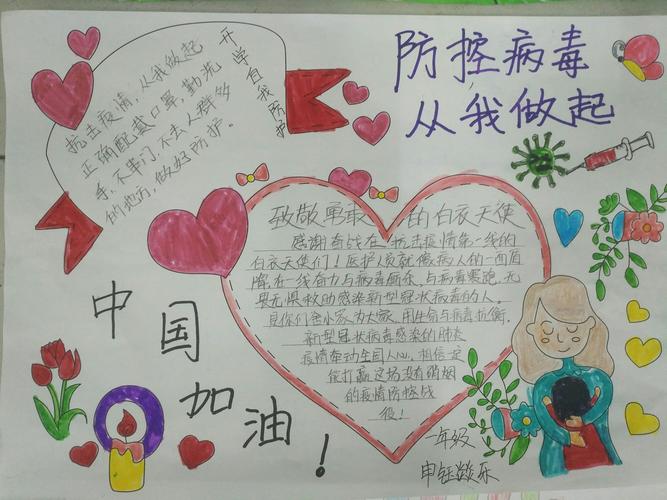 防控病毒
从我做起
开学自我防护
抗击疫情，从我做起
正确配戴口罩，勤洗
手，不串门，不去人群多
的地方，做好防护。
致敬勇敢的白衣天使
感谢奋战在抗击疫情第一线的
白衣天使们！医护人员就像病人的一面盾
牌在一线奋力与病毒厮杀，与病毒赛跑，无
畏无惧救助感染新型冠状病毒的人。
是你们舍小家为大家，用生命与病毒抗衡，
新型冠状病毒感染的肺炎
疫情牵动全国人心，相信一定
能打赢这场没有硝烟
的疫情防控战
役！
中国加油！
一年级
申钰
乐